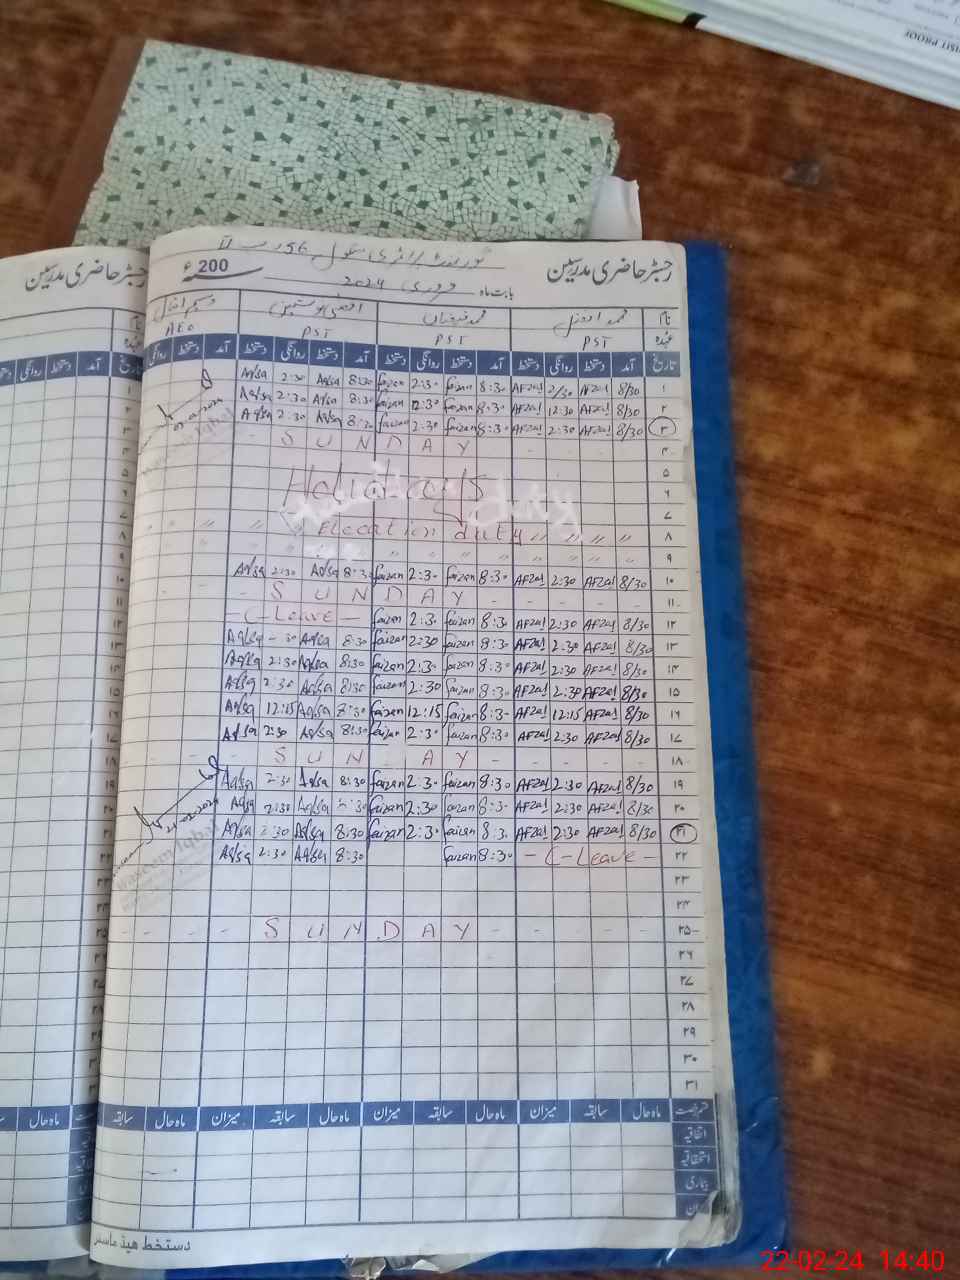 VISIT PROOF
رجسٹر حاضری مدرسین
رجسٹر حاضری مدرسین 200 ء
بابت ماہ فروری 2024
نام محمد افضل محمد فیضان
عہدہ PST PST PST AEO
تاریخ آمد دستخط روانگی دستخط آمد دستخط روانگی دستخط آمد دستخط روانگی دستخط
۱ 8/30 AFzal 2/30 AFzal 8:30 faizan 2:30 faizan 8:30 Aqsa 2:30 Aqsa
۲ 8/30 AFzal 12:30 AFzal 8:30 faizan 12:30 faizan 8:30 Aqsa 2:30 Aqsa
۳ 8/30 AFzal 2:30 AFzal 8:30 faizan 2:30 faizan 8:30 Aqsa 2:30 Aqsa
۴ SUNDAY
۵
۶ Holidays
۷
۸ Election duty
۹ " " " "
۱۰ 8/30 AFzal 2:30 AFzal 8:30 faizan 2:30 faizan 8:30 Aqsa 2:30 Aqsa
۱۱ SUNDAY
۱۲ 8/30 AFzal 2:30 AFzal 8:30 faizan 2:30 faizan - C-Leave -
۱۳ 8/30 AFzal 2:30 AFzal 8:30 faizan 2:30 faizan 8:30 Aqsa -30 Aqsa
۱۴ 8/30 AFzal 2:30 AFzal 8:30 faizan 2:30 faizan 8:30 Aqsa 2:30 Aqsa
۱۵ 8/30 AFzal 2:30 AFzal 8:30 faizan 2:30 faizan 8:30 Aqsa 2:30 Aqsa
۱۶ 8/30 AFzal 12:15 AFzal 8:30 faizan 12:15 faizan 8:30 Aqsa 12:15 Aqsa
۱۷ 8/30 AFzal 2:30 AFzal 8:30 faizan 2:30 faizan 8:30 Aqsa 2:30 Aqsa
۱۸ SUN AY
۱۹ 8/30 AFzal 2:30 AFzal 8:30 faizan 2:30 faizan 8:30 Aqsa 2:30 Aqsa
۲۰ 8/30 AFzal 2:30 AFzal 8:30 faizan 2:30 faizan 8:30 Aqsa 2:30 Aqsa
۲۱ 8/30 AFzal 2:30 AFzal 8:30 faizan 2:30 faizan 8:30 Aqsa 2:30 Aqsa
۲۲ - C-Leave - 8:30 faizan 8:30 Aqsa 2:30 Aqsa
Waseem Iqbal
۲۳
۲۴
۲۵ SUNDAY
۲۶
۲۷
۲۸
۲۹
۳۰
۳۱
قسم رخصت ماہ حال سابقہ میزان ماہ حال سابقہ میزان ماہ حال سابقہ میزان ماہ حال سابقہ
اتفاقیہ
استحقاقیہ
بیماری
میزان
دستخط ہیڈ ماسٹر
22-02-24 14:40